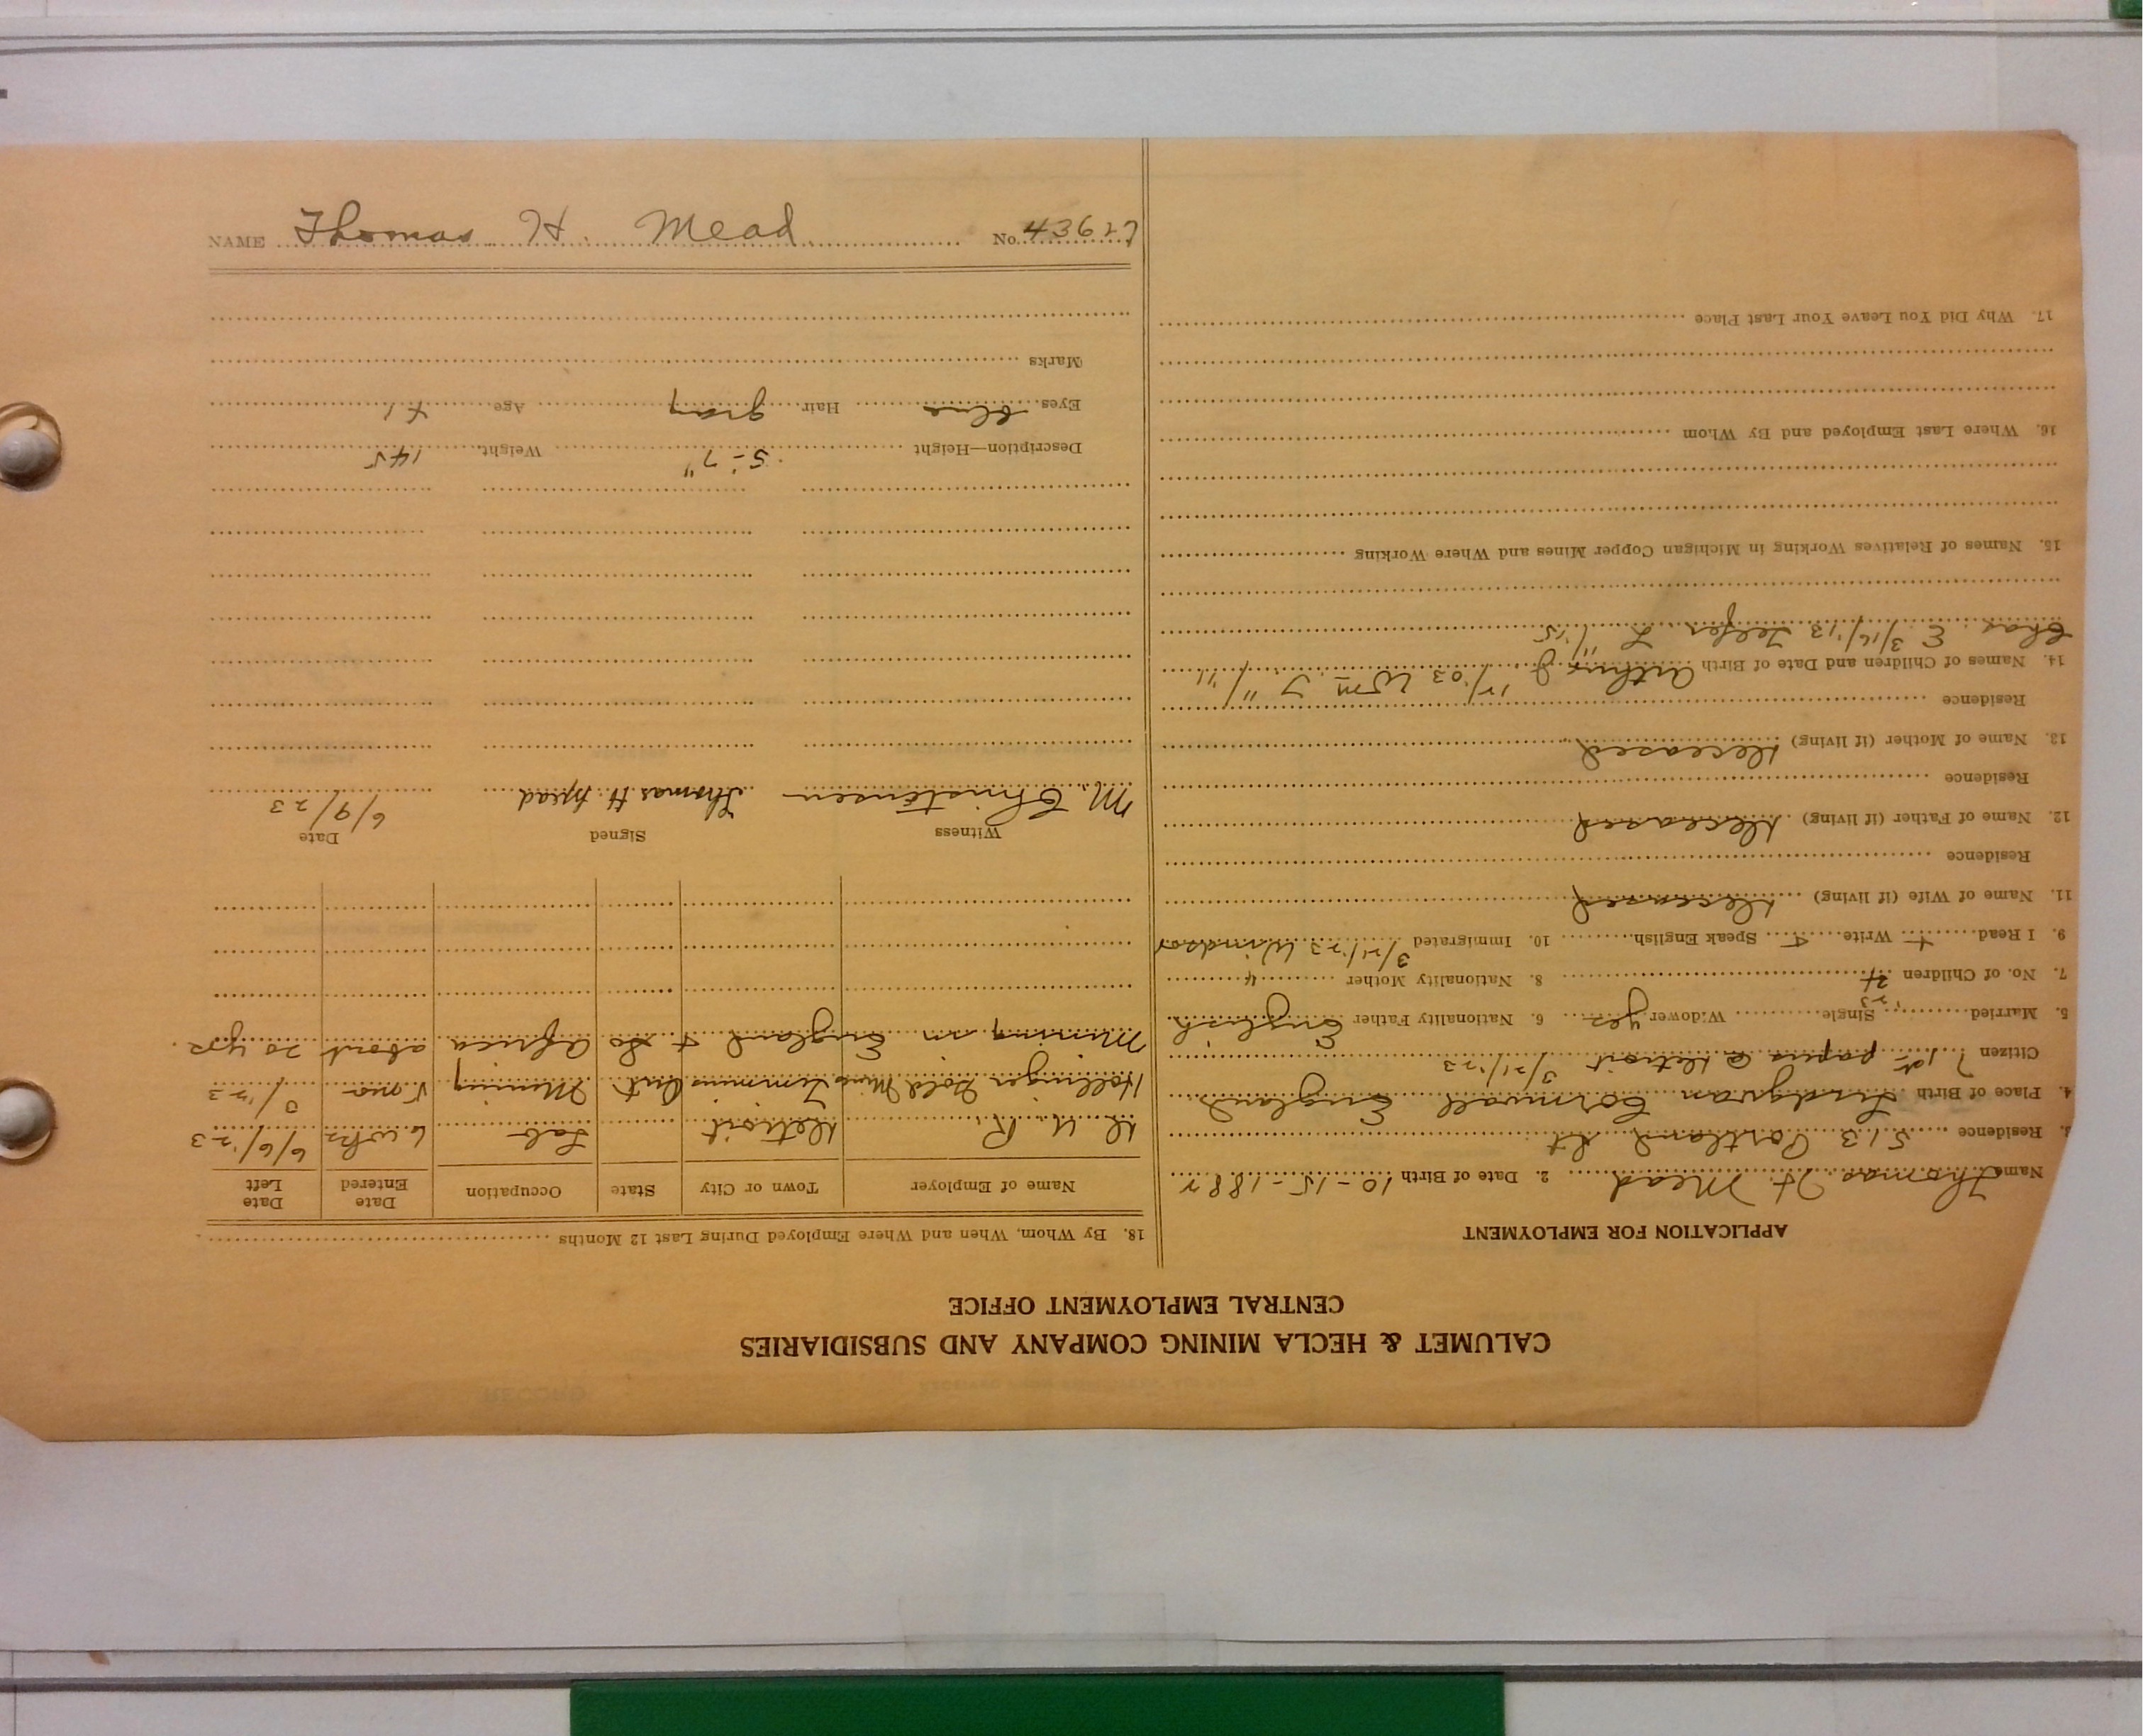 CALUMET & HECLA MINING COMPANY AND SUBSIDIARIES
CENTRAL EMPLOYMENT OFFICE
APPLICATION FOR EMPLOYMENT
Name Thomas H. Mead 2. Date of Birth 10-15-1882
3. Residence 513 Portland St
4. Place of Birth Ludgvan Cornwall England
Citizen ? 1st papers @ Detroit 3/21/23
5. Married Single Widower yes 6. Nationality Father English
7. No. of Children 4 8. Nationality Mother "
9. I Read + Write + Speak English 10. Immigrated 3/21/23 Windsor
11. Name of Wife (if living) Deceased
Residence
12. Name of Father (if living) Deceased
Residence
13. Name of Mother (if living) Deceased
Residence
14. Names of Children and Date of Birth Arthur J /03 Wm T "/11
Chas. E 3/16/13 Telfer L "/15
15. Names of Relatives Working in Michigan Copper Mines and Where Working
16. Where Last Employed and By Whom
17. Why Did You Leave Your Last Place
18. By Whom, When and Where Employed During Last 12 Months
Name of Employer Town or City State Occupation Date Entered Date Left
D. U. R. Detroit Lab 6 wks 6/6/23
Hollinger Gold Mine Timmins Ont. Mining 5 mo 3/23
Mining in England & So Africa about 20 yrs.
Witness Signed Date
M. Christensen Thomas H Mead 6/9/23
Description—Height 5'-7" Weight 145
Eyes blue Hair gray Age 41
Marks
NAME Thomas H. Mead No. 43627